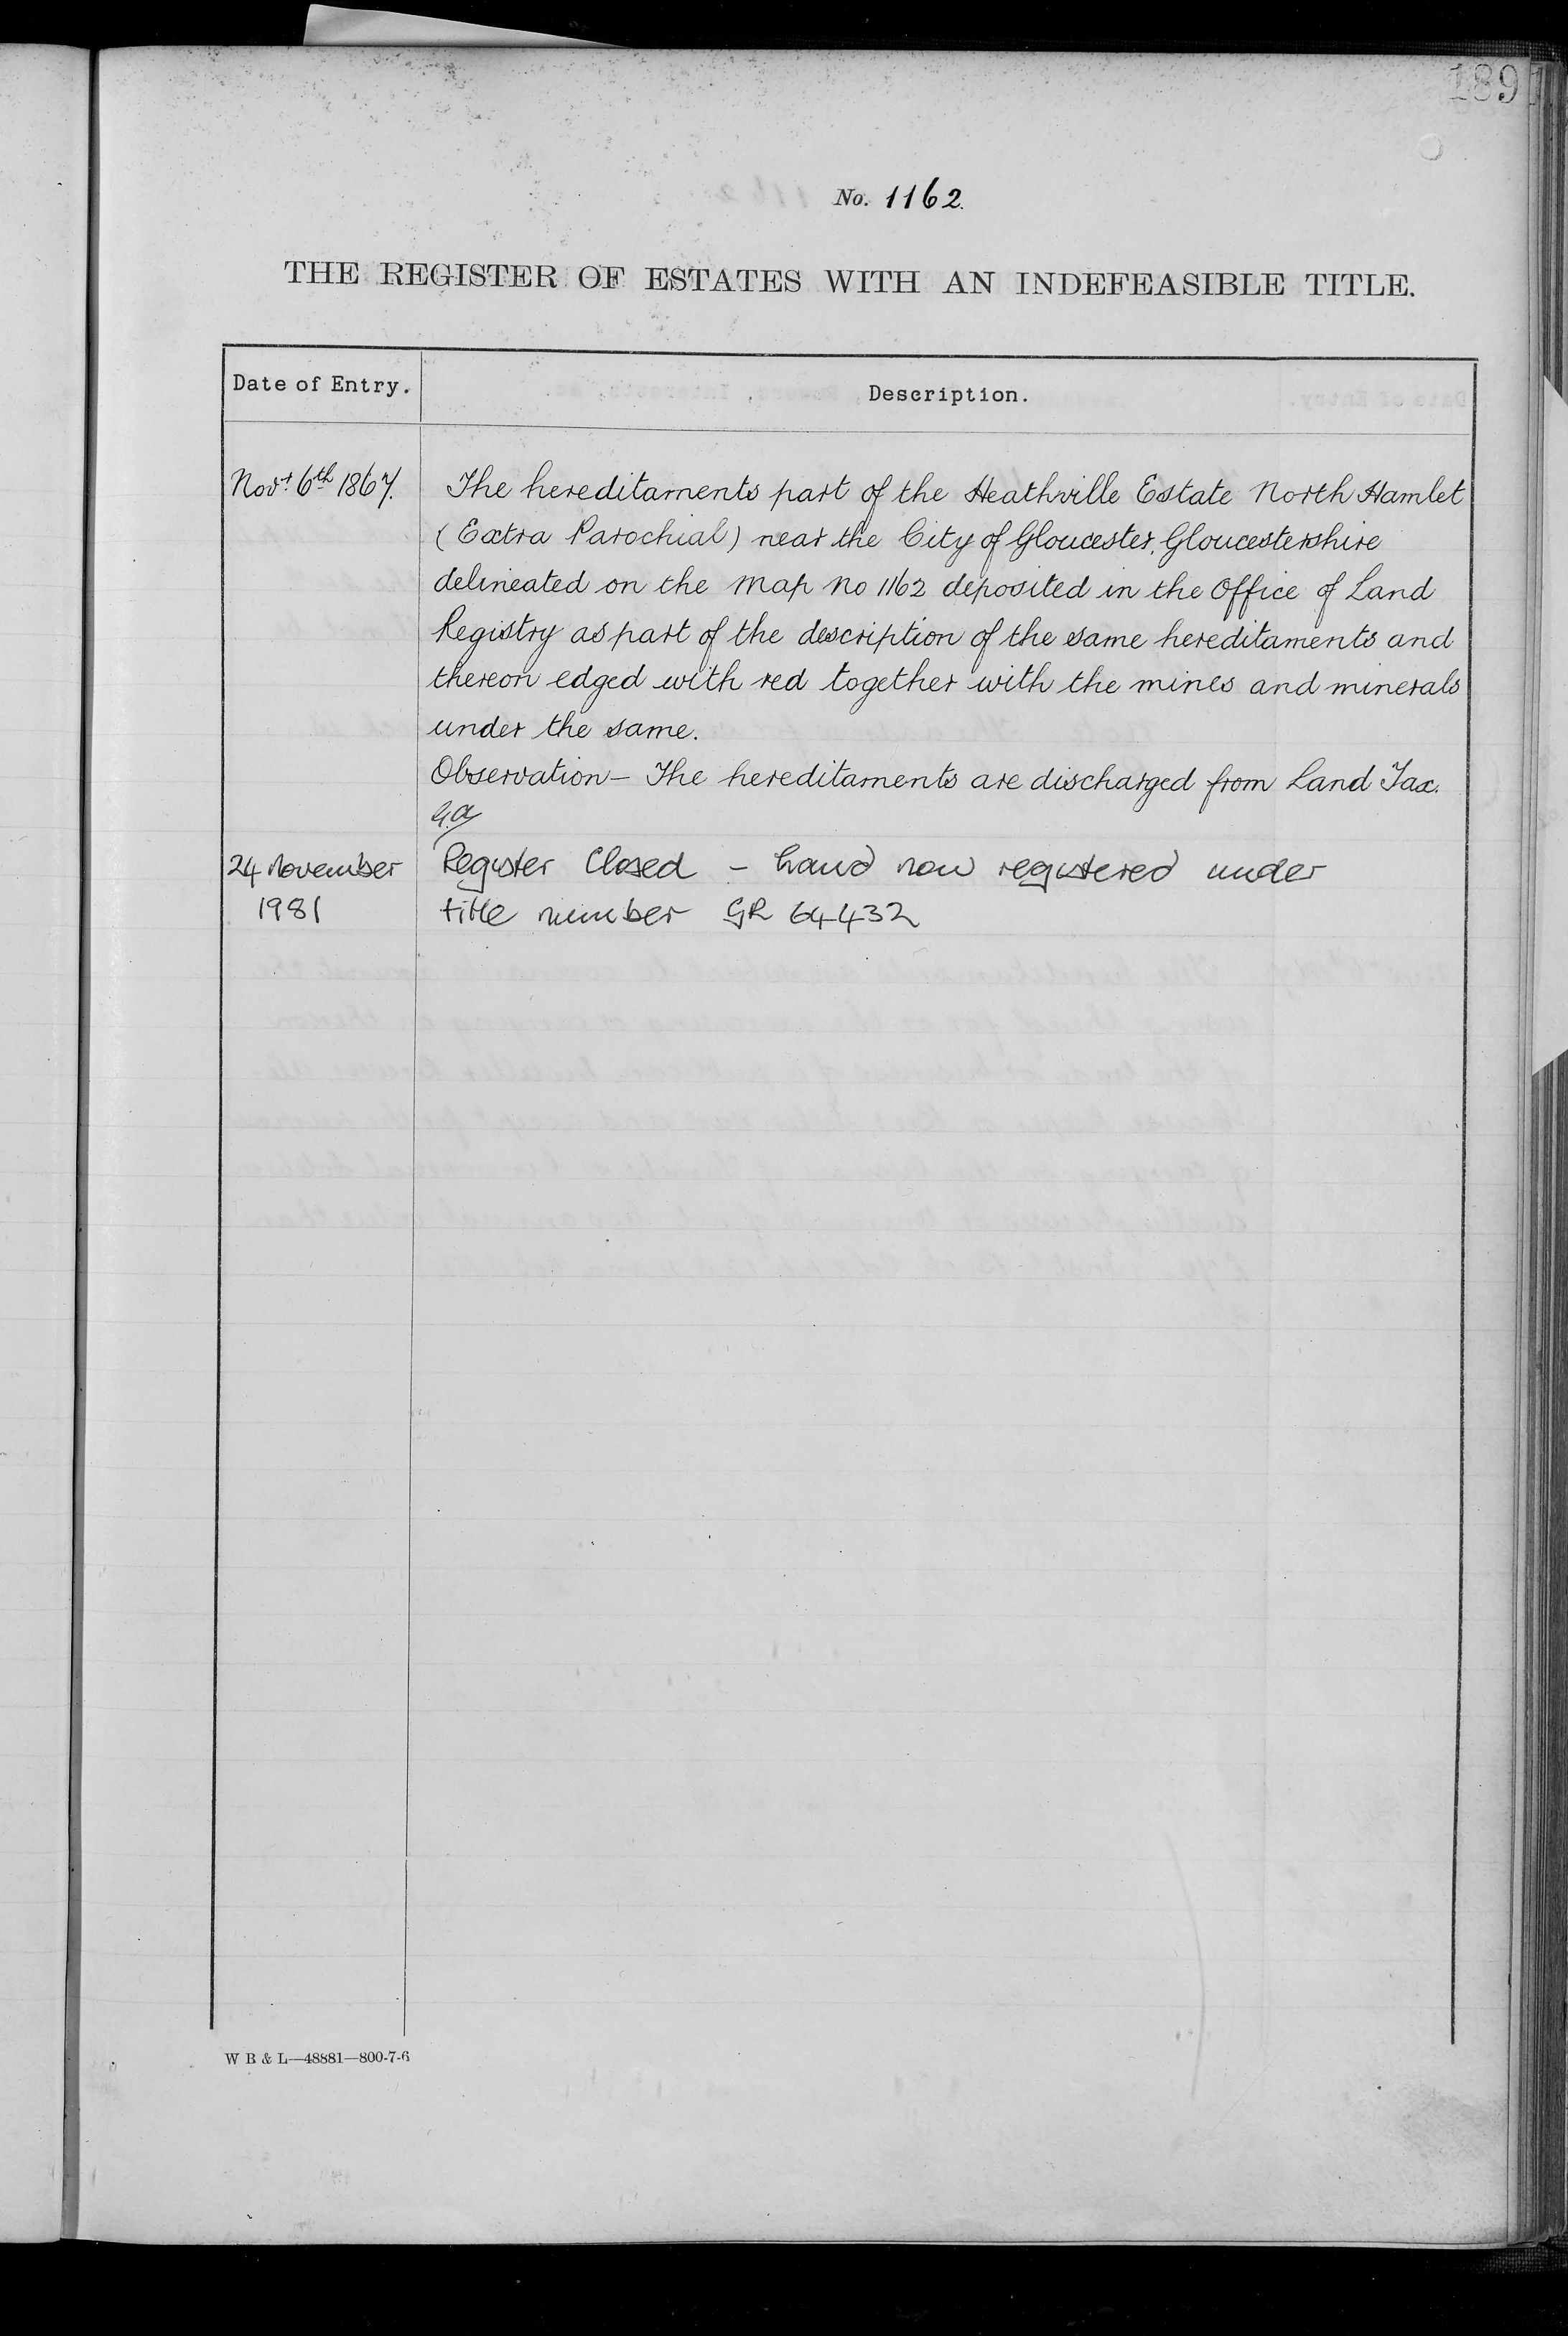 189
No. 1162.
THE REGISTER OF ESTATES WITH AN INDEFEASIBLE TITLE.
Date of Entry.
Description.
Novr. 6th 1867.
The hereditaments part of the Heathville Estate North Hamlet
(Extra Parochial) near the City of Gloucester, Gloucestershire
delineated on the Map No 1162 deposited in the Office of Land
Registry as part of the description of the same hereditaments and
thereon edged with red together with the mines and minerals
under the same.
Observation – The hereditaments are discharged from Land Tax.
24 November
1981
Register Closed – Land now registered under
title number GR 64432
W B & L—48881—800-7-6